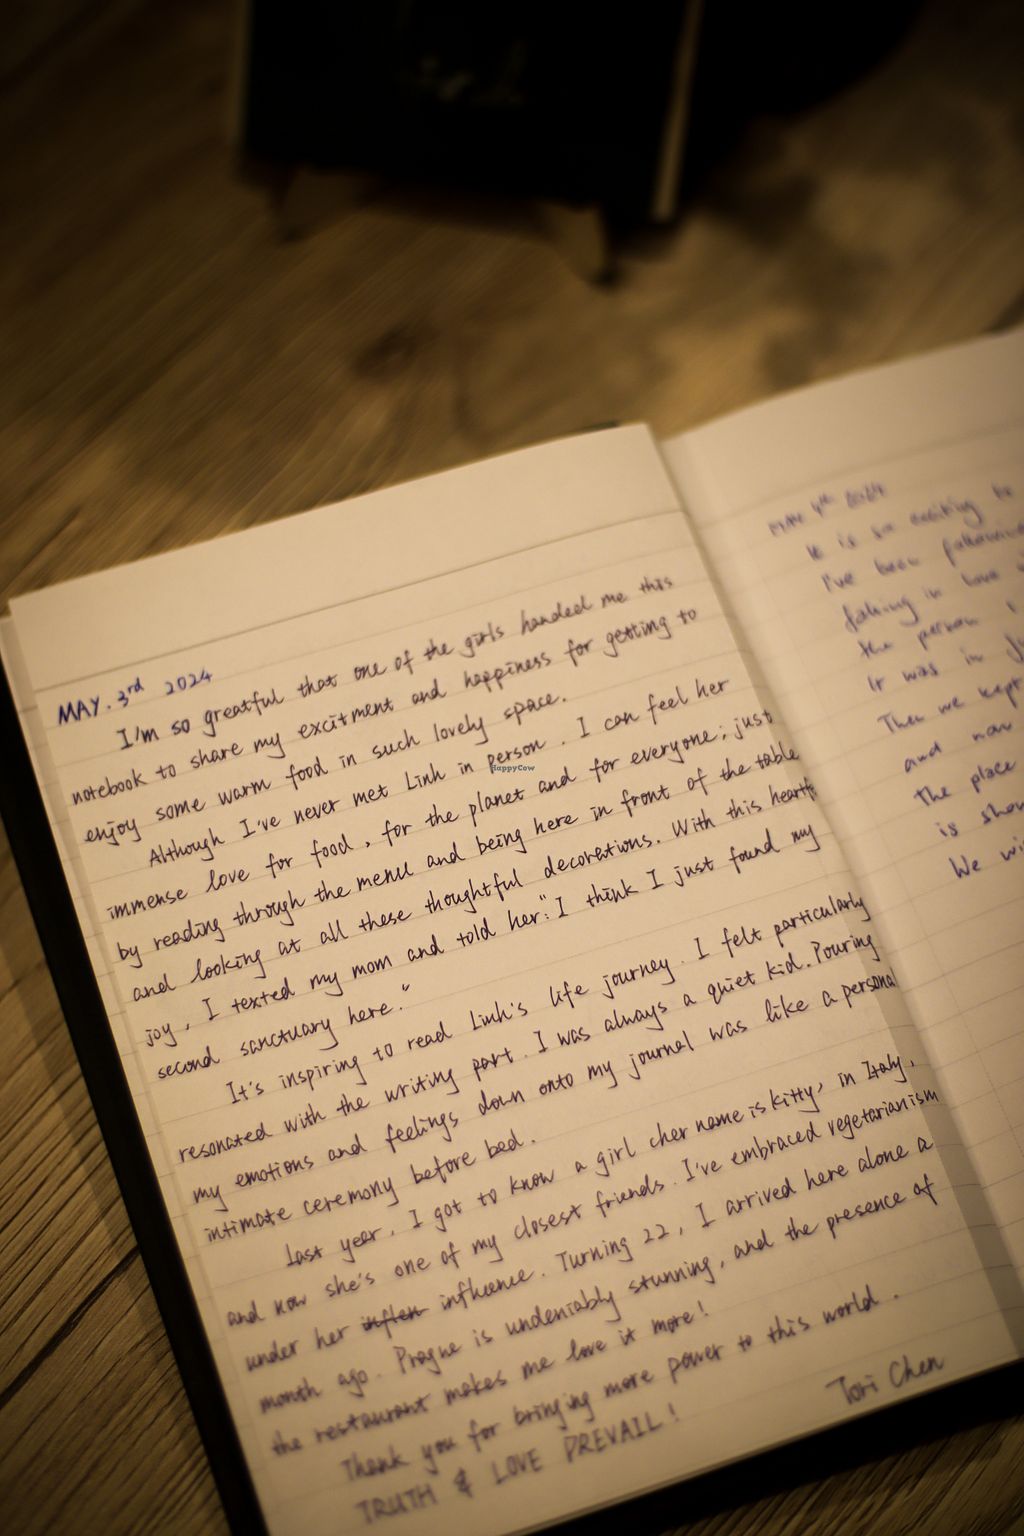 MAY. 3rd 2024
I'm so greatful that one of the girls handed me this
notebook to share my excitment and happiness for getting to
enjoy some warm food in such lovely space.
Although I've never met Linh in person. I can feel her
immense love for food, for the planet and for everyone; just
by reading through the menu and being here in front of the table
and looking at all these thoughtful decorations. With this heartf
joy, I texted my mom and told her: "I think I just found my
second sanctuary here."
It's inspiring to read Linh's life journey. I felt particularly
resonated with the writing part. I was always a quiet kid. Pouring
my emotions and feelings down onto my journal was like a personal
intimate ceremony before bed.
Last year, I got to know a girl cher name is kitty, in Italy,
and now she's one of my closest friends. I've embraced vegetarianism
under her inflen influence. Turning 22, I arrived here alone a
month ago. Prague is undeniably stunning, and the presence of
the restaurant makes me love it more!
Thank you for bringing more power to this world.
TRUTH & LOVE PREVAIL!
Tori Chen
HappyCow
MAY 4th 2024
It is so exciting to
I've been following
falling in love
the person I
It was in
Then we kept
and now
The place
is show
We wi